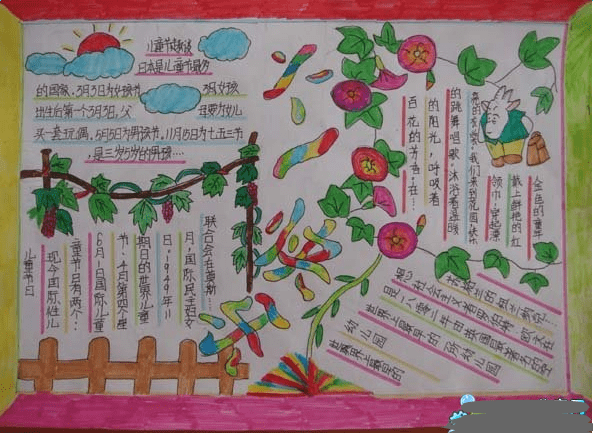 儿童节趣谈
日本是儿童节最多
的国家，3月3日为女孩节
3月女孩
出生后第一个3月3日，父
母要为女儿
买一套玩偶，5月5日为男孩节，11月15日为"七五三"节
，是三岁5岁的男孩…
六
一
金色的童年
戴上鲜艳的红
领巾，穿起漂
亮的衣裳，我们来到花园，快乐
的跳舞唱歌，沐浴着温暖
的阳光，呼吸着
百花的芳香，在…
儿童节日
现今国际性儿
童节日有两个：
6月1日国际儿童
节，4月第四个星
期日的世界儿童
日，1949年11
月，国际民主妇女
联合会在莫斯…
世界上最早的
幼儿园
世界上最早的一所幼儿园
是一八零二年由英国最著名的空
想社会主义者罗伯特·欧文在
苏格兰的纽兰纳克…